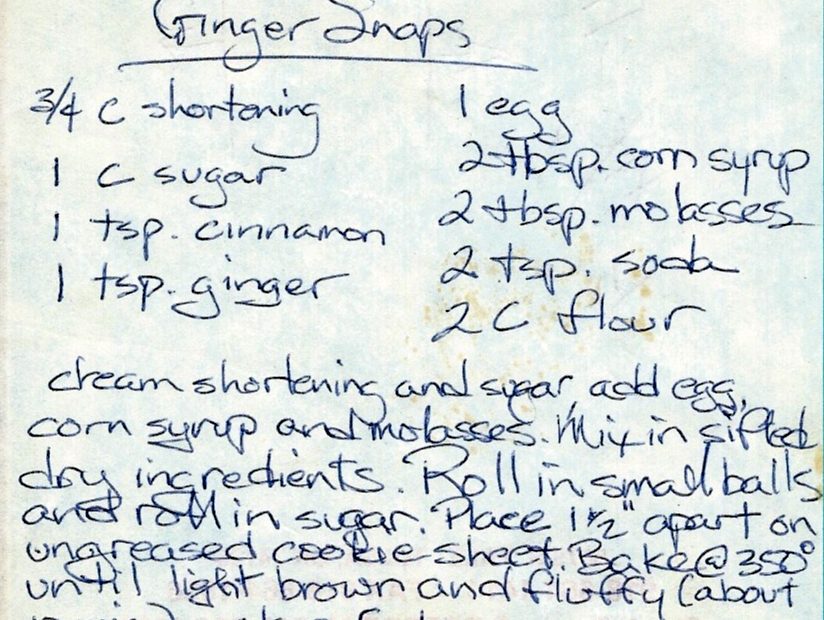 Ginger Snaps
3/4 C shortening
1 C sugar
1 tsp. cinnamon
1 tsp. ginger
1 egg
2 tbsp. corn syrup
2 tbsp. molasses
2 tsp. soda
2 C flour
cream shortening and sugar, add egg,
corn syrup and molasses. Mix in sifted
dry ingredients. Roll in small balls
and roll in sugar. Place 1 1/2" apart on
ungreased cookie sheet. Bake @ 350°
until light brown and fluffy (about